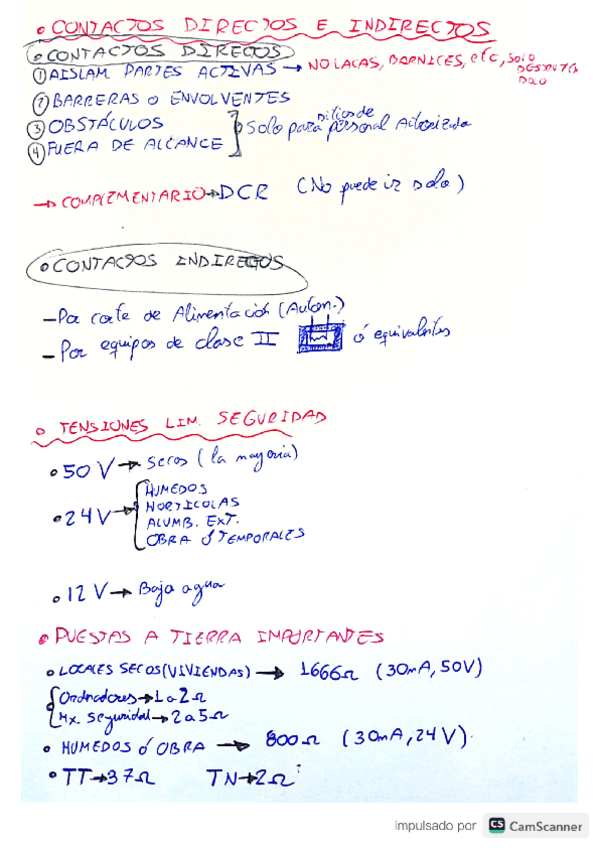 • CONTACTOS DIRECTOS E INDIRECTOS
• CONTACTOS DIRECTOS
① AISLAM PARTES ACTIVAS → NO LACAS, BARNICES, etc, solo
② BARRERAS O ENVOLVENTES
③ OBSTÁCULOS
④ FUERA DE ALCANCE
Solo para personal Autorizado
→ COMPLEMENTARIO → DCR (No puede ir solo)
• CONTACTOS INDIRECTOS
- Por corte de Alimentación (Autom.)
- Por equipos de clase II ó equivalentes
• TENSIONES LIM. SEGURIDAD
• 50 V → secos (la mayoria)
• 24 V → HUMEDOS
HORTICOLAS
ALUMB. EXT.
OBRA Ó TEMPORALES
• 12 V → Bajo agua
• PUESTAS A TIERRA IMPORTANTES
• LOCALES SECOS (VIVIENDAS) → 1666Ω (30mA, 50V)
Ordenadores → 1 a 2 Ω
Mx. seguridad → 2 a 5 Ω
• HUMEDOS Ó OBRA → 800Ω (30mA, 24V)
• TT → 37Ω TN → 2Ω
impulsado por CS CamScanner